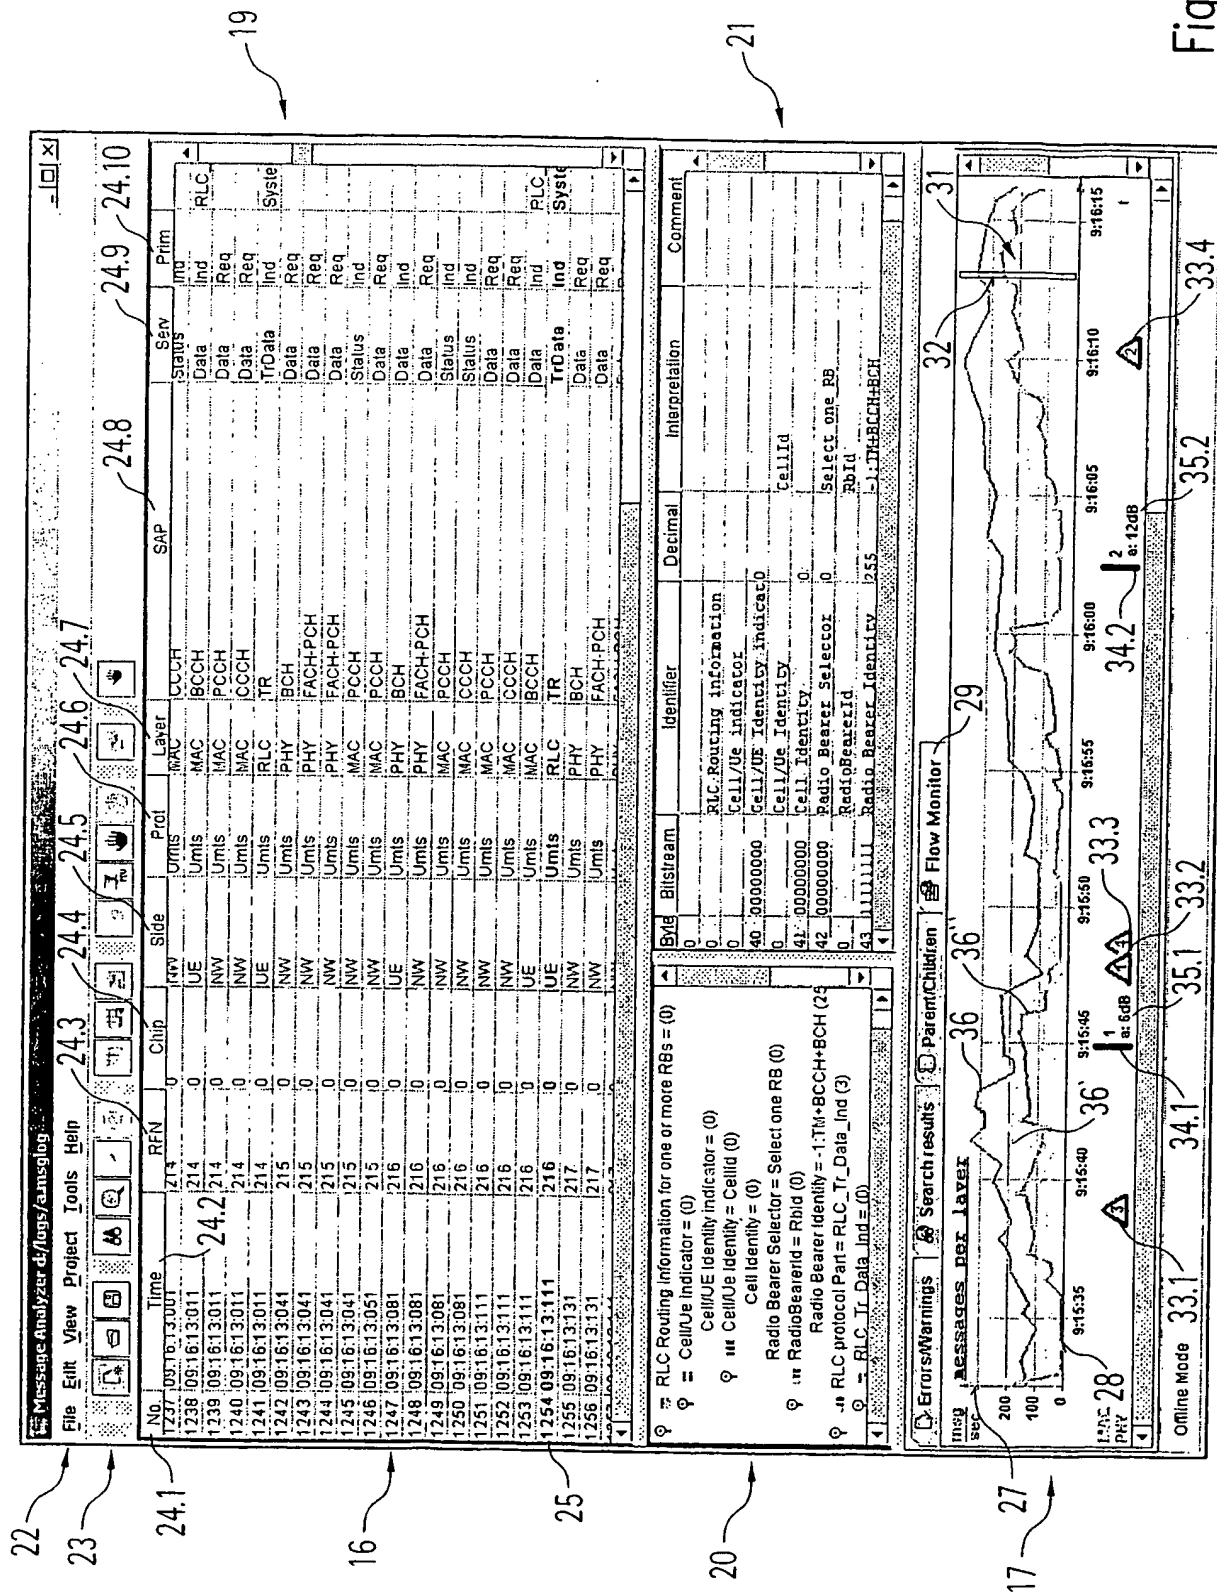 Message Analyzer d:/logs/a.msglog
File Edit View Project Tools Help
No. Time RFN Chip Side Prot Layer SAP Serv Prim
1237 09:16:13:001 214 0 NW Umts MAC CCCH Status Ind
1238 09:16:13:011 214 0 UE Umts MAC BCCH Data Ind RLC_
1239 09:16:13:011 214 0 NW Umts MAC PCCH Data Req
1240 09:16:13:011 214 0 NW Umts MAC CCCH Data Req
1241 09:16:13:011 214 0 UE Umts RLC TR TrData Ind Syste
1242 09:16:13:041 215 0 NW Umts PHY BCH Data Req
1243 09:16:13:041 215 0 NW Umts PHY FACH-PCH Data Req
1244 09:16:13:041 215 0 NW Umts PHY FACH-PCH Data Req
1245 09:16:13:041 215 0 NW Umts MAC PCCH Status Ind
1246 09:16:13:051 215 0 NW Umts MAC PCCH Data Req
1247 09:16:13:081 216 0 UE Umts PHY BCH Data Ind
1248 09:16:13:081 216 0 NW Umts PHY FACH-PCH Data Req
1249 09:16:13:081 216 0 NW Umts MAC PCCH Status Ind
1250 09:16:13:081 216 0 NW Umts MAC CCCH Status Ind
1251 09:16:13:111 216 0 NW Umts MAC PCCH Data Req
1252 09:16:13:111 216 0 NW Umts MAC CCCH Data Req
1253 09:16:13:111 216 0 UE Umts MAC BCCH Data Ind RLC_
1254 09:16:13:111 216 0 UE Umts RLC TR TrData Ind Syste
1255 09:16:13:131 217 0 NW Umts PHY BCH Data Req
1256 09:16:13:131 217 0 NW Umts PHY FACH-PCH Data Req
RLC Routing Information for one or more RBs = (0)
Cell/Ue Indicator = (0)
Cell/UE Identity indicator = (0)
Cell/Ue identity = CellId (0)
Cell Identity = (0)
Radio Bearer Selector = Select one RB (0)
RadioBearerId = RbId (0)
Radio Bearer Identity = -1:TM+BCCH+BCH (25
RLC protocol Part = RLC_Tr_Data_Ind (3)
RLC_Tr_Data_Ind = (0)
Byte Bitstream Identifier Decimal Interpretation Comment
0
0 RLC Routing information
0 Cell/Ue indicator
40 00000000 Cell/UE Identity indicat 0
0 Cell/Ue Identity CellId
41 00000000 Cell Identity 0
42 00000000 Radio Bearer Selector 0 Select one RB
0 RadioBearerId RbId
43 11111111 Radio Bearer Identity 255 -1:TM+BCCH+BCH
Errors/Warnings Search results Parent/Children Flow Monitor
msg Messages per layer
sec
200
100
0
9:15:35 9:15:40 9:15:45 9:15:50 9:15:55 9:16:00 9:16:05 9:16:10 9:16:15
PHY
3
1
a: 6dB
4
2
a: 12dB
2
Offline Mode
22
23
24.1
24.2
24.3
24.4
24.5
24.6
24.7
24.8
24.9
24.10
16
19
25
20
21
17
27
28
29
31
32
33.1
33.2
33.3
33.4
34.1
34.2
35.1
35.2
36
36'
36''
Fig